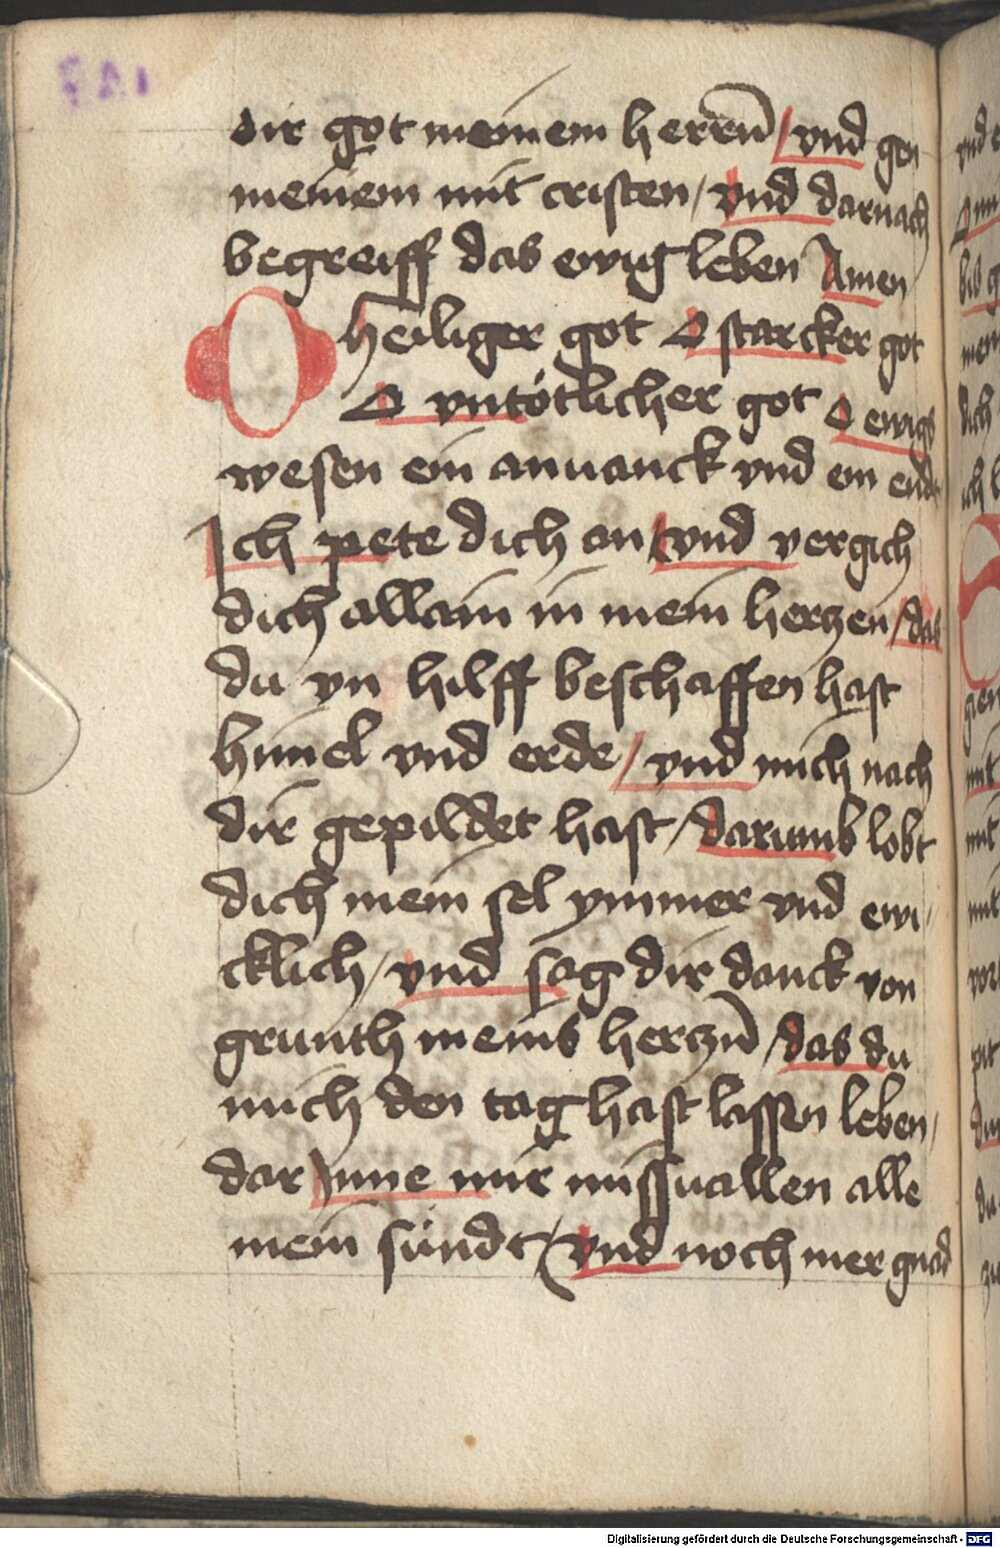 dir got meinem herren̄ / vnd gen
meinem mit cristen / vnd darnach
begreiff das ewig leben Amen
O heiliger got O starcker got
O vntötlicher got O ewigs
wesen ein anuanck vnd ein endt
Ich pete dich an / vnd vergich
dich allain in mein herczen / das
du yn hilff beschaffen hast
himel vnd erde / vnd mich nach
dir gepildet hast / darumb lobt
dich mein sel ymmer vnd ewi
cklich / vnd sag dir danck von
grunth meins herczn̄ / das du
mich den tag hast lassen leben /
dar Inne mir missuallen alle
mein sündt / vnd noch mer gnad
Digitalisierung gefördert durch die Deutsche Forschungsgemeinschaft - DFG